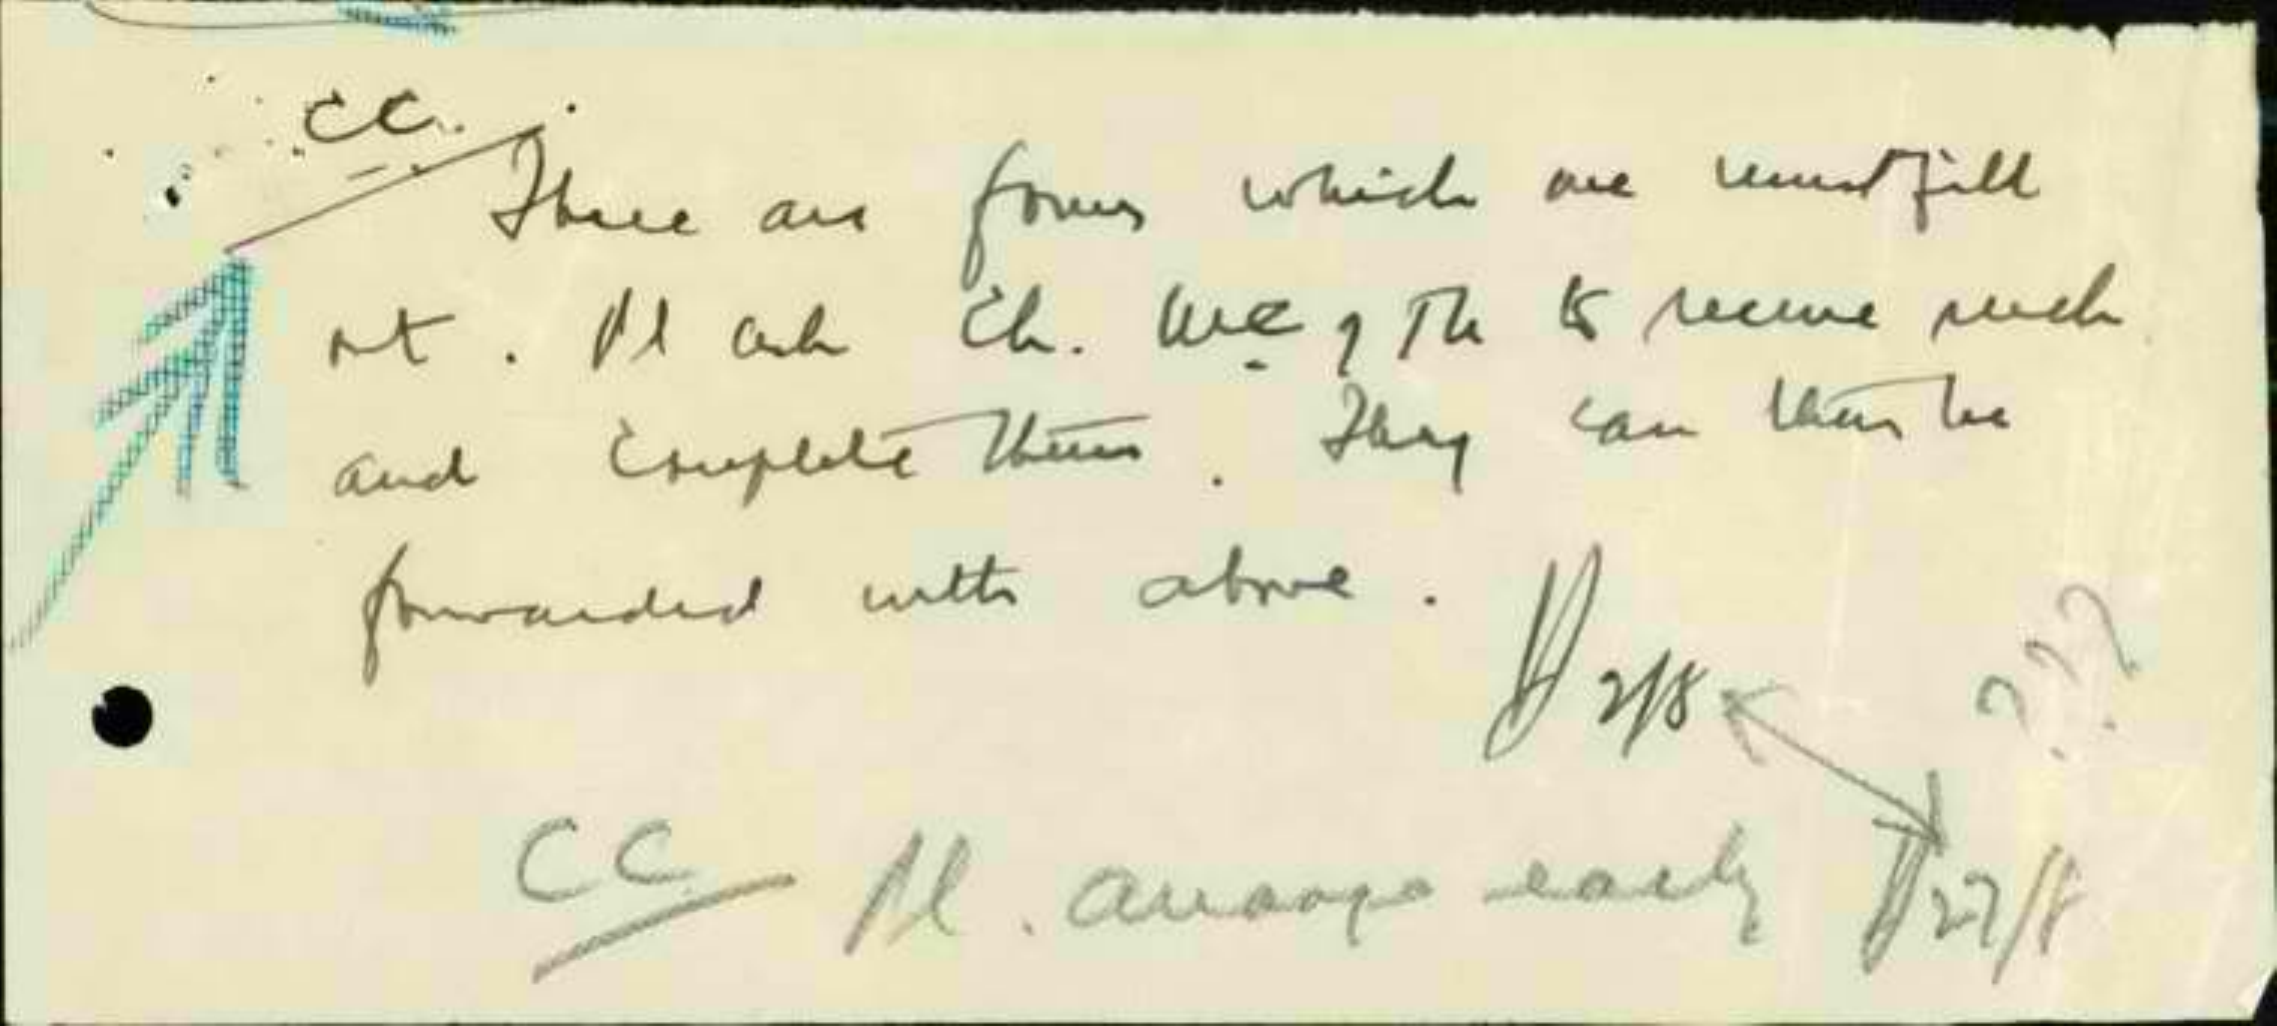 CC.
There are forms which we must fill
out. Pl ask Ch. to receive such
and complete them. They can then be
forwarded with above.
2/8
???
CC Pl. arrange early 27/8